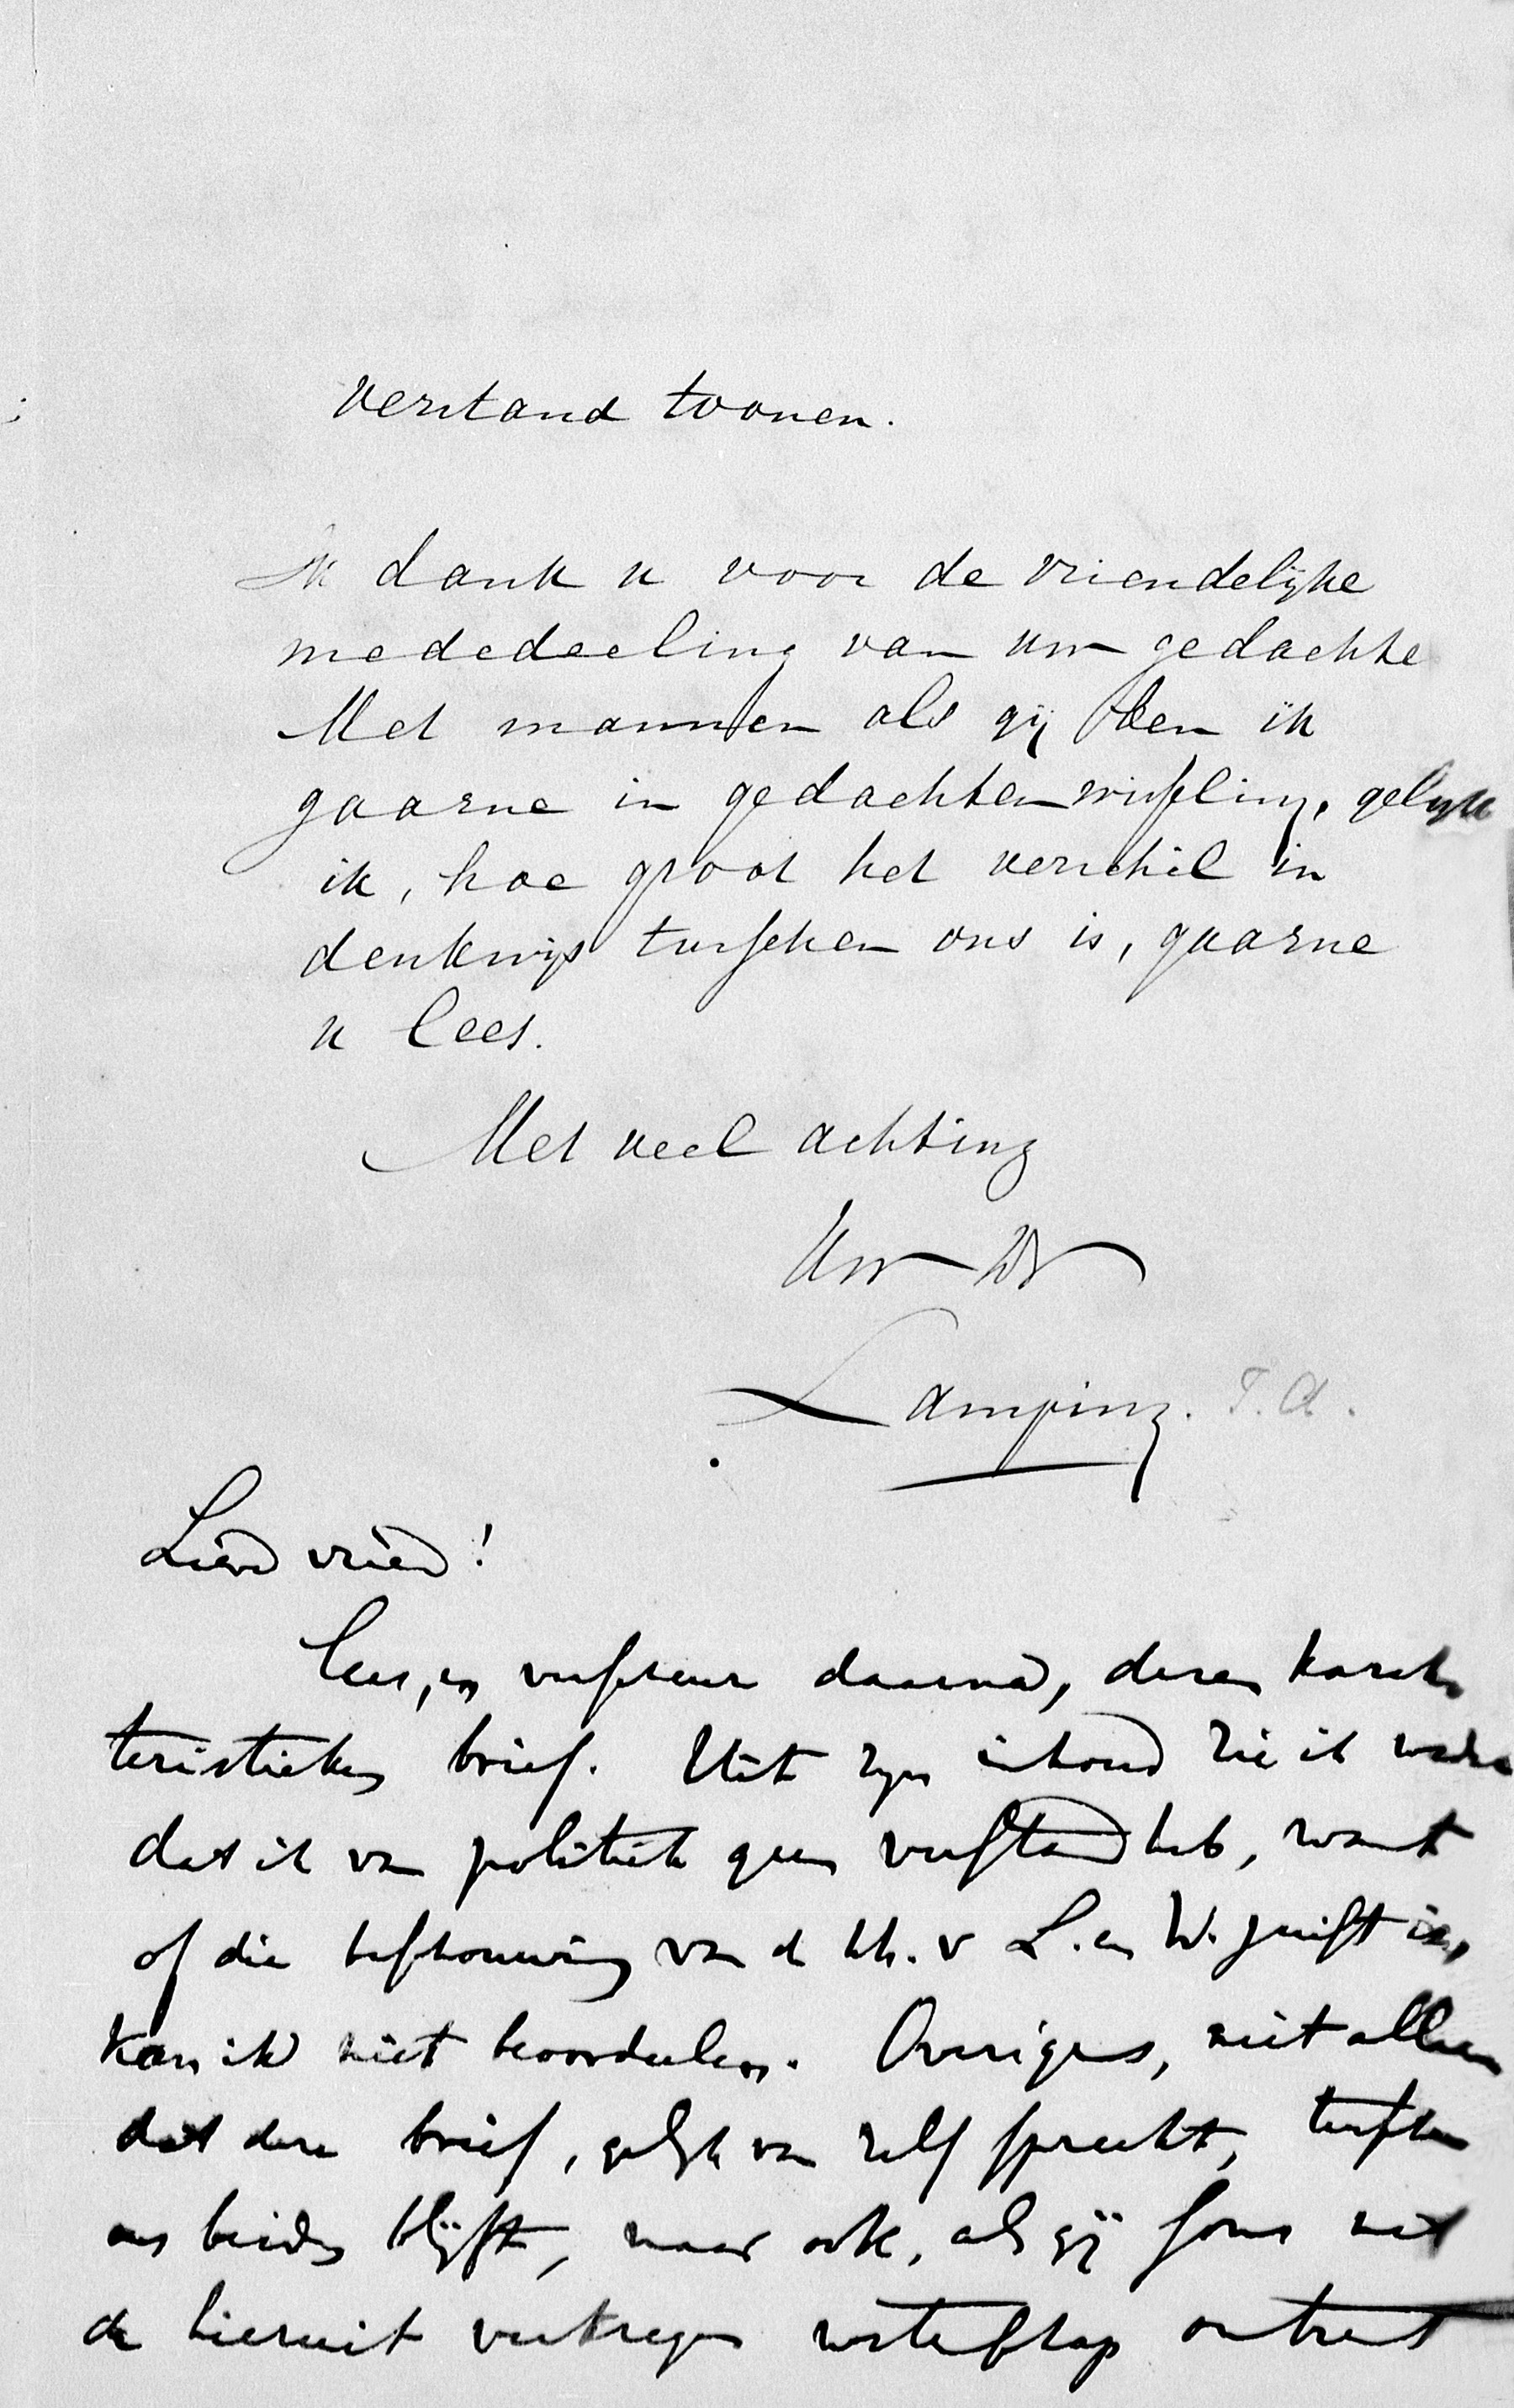 verstand toonen.
Ik dank u voor de vriendelijke
mededeeling van uw gedachte
Met mannen als gij ben ik
gaarne in gedachtenwisseling, gelijk
ik, hoe groot het verschil in
denkwijs tusschen ons is, gaarne
u lees.
Met veel achting
Uw Dr
Lamping. T.A.
Lieve vriend!
Lees, en verscheur daarna, dezen karak
teristieken brief. Uit zijn inhoud zie ik weder
dat ik van politiek geen verstand heb, want
of die beschouwing van d Hh. v L. en W. juist is,
kan ik niet beoordeelen. Overigens, niet alleen
dat deze brief, gelijk van zelf spreekt, tusschen
ons beiden blijft, maar ook, als gij soms met
de hieruit verkregen wetenschap omtrent